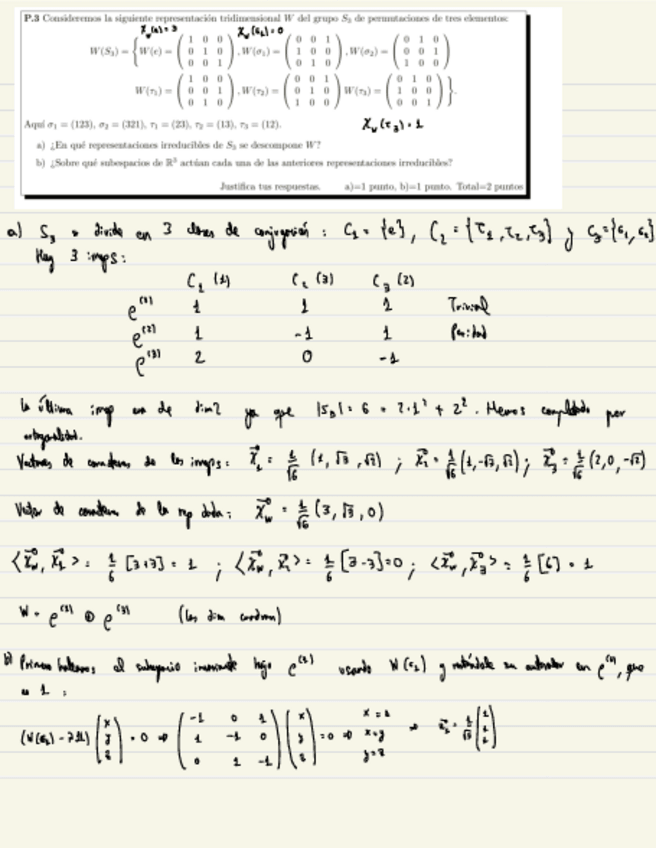 P.3 Consideremos la siguiente representación tridimensional W del grupo S₃ de permutaciones de tres elementos:
χ_w(e) = 3 χ_w(σ₂) = 0
W(S₃) = { W(e) = ( 1 0 0 ; 0 1 0 ; 0 0 1 ), W(σ₁) = ( 0 0 1 ; 1 0 0 ; 0 1 0 ), W(σ₂) = ( 0 1 0 ; 0 0 1 ; 1 0 0 )
W(τ₁) = ( 1 0 0 ; 0 0 1 ; 0 1 0 ), W(τ₂) = ( 0 0 1 ; 0 1 0 ; 1 0 0 ) W(τ₃) = ( 0 1 0 ; 1 0 0 ; 0 0 1 ) }.
Aquí σ₁ = (123), σ₂ = (321), τ₁ = (23), τ₂ = (13), τ₃ = (12). χ_w(τ₃) = 1
a) ¿En qué representaciones irreducibles de S₃ se descompone W?
b) ¿Sobre qué subespacios de ℝ³ actúan cada una de las anteriores representaciones irreducibles?
Justifica tus respuestas. a)=1 punto, b)=1 punto. Total=2 puntos
a) S₃ se divide en 3 clases de conjugación : C₁ = {e}, C₂ = {τ₁, τ₂, τ₃} y C₃ = {σ₁, σ₂}
Hay 3 irreps:
C₁ (1) C₂ (3) C₃ (2)
ρ⁽¹⁾ 1 1 1 Trivial
ρ⁽²⁾ 1 -1 1 Paridad
ρ⁽³⁾ 2 0 -1
La última irrep es de dim 2 ya que |S₃| = 6 = 2·1² + 2². Hemos completado por
ortogonalidad.
Vectores de caracteres de los irreps: χ⃗₁ = 1/√6 (1, √3, √2) ; χ⃗₂ = 1/√6 (1, -√3, √2) ; χ⃗₃ = 1/√6 (2, 0, -√2)
Vector de caracteres de la rep dada: χ⃗_w = 1/√6 (3, √3, 0)
⟨χ⃗_w, χ⃗₁⟩ = 1/6 [3+3] = 1 ; ⟨χ⃗_w, χ⃗₂⟩ = 1/6 [3-3] = 0 ; ⟨χ⃗_w, χ⃗₃⟩ = 1/6 [6] = 1
W = ρ⁽¹⁾ ⊕ ρ⁽³⁾ (las dim cuadran)
b) Primero hallamos el subespacio invariante bajo ρ⁽¹⁾ usando W(σ₁) y su en ρ⁽¹⁾, que
es 1 :
(W(σ₁) - 1) ( x ; y ; z ) = 0 ⇒ ( -1 0 1 ; 1 -1 0 ; 0 1 -1 ) ( x ; y ; z ) = 0 ⇒ x = z x = y y = z ⇒ = 1/√3 ( 1 ; 1 ; 1 )